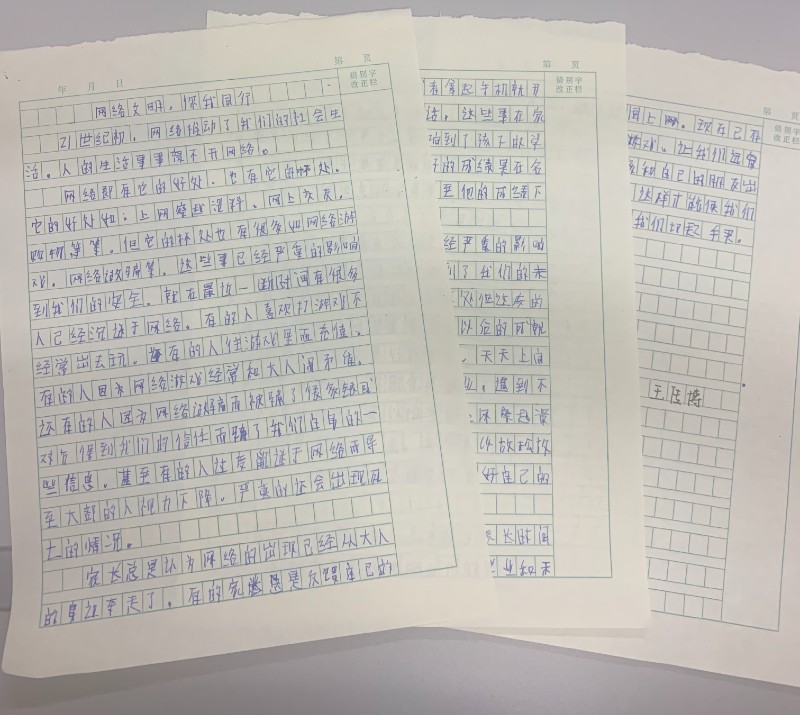 第 页
年 月 日
错别字
改正栏
网络文明，伴我同行
21世纪初，网络推动了我们的社会生
活。人的生活事事离不开网络。
网络即有它的好处，也有它的坏处。
它的好处如：上网查些资料、网上交友，
购物等等。但它的坏处也有很多如网络游
戏，网络诈骗等。这些事已经严重的影响
到我们的安全。就在最近一断时间有很多
人已经沉迷于网络。有的人喜欢打游戏不
经常出去玩。有的人往游戏里面充值。
有的人因为网络游戏经常和大人闹矛盾。
还有的人因为网络诈骗而被骗了很多钱或
对方得到我们的信任而骗了我们自身的一
些信息。甚至有的人过度沉迷于网络而导
至大部的人视力下降。严重的还会出现死
亡的情况。
家长总是认为网络的出现已经从大人
的身边夺走了。有的家长总是反强自己的
第 页
错别字
改正栏
着拿起手机就开
活，这些事在家
响到了孩子的学
子的成绩果在名
至他的成绩下
经严重的影响
到了我们的未
处但过度的
以论的成就
，天天上网
，遇到不
环带起资
好自己的
长长时间
业和未
第 页
错别字
改正栏
网上网。现在已存
游戏。让我们远离
和自己的朋友出
这样才能使我们
我们切起手来。
王 博